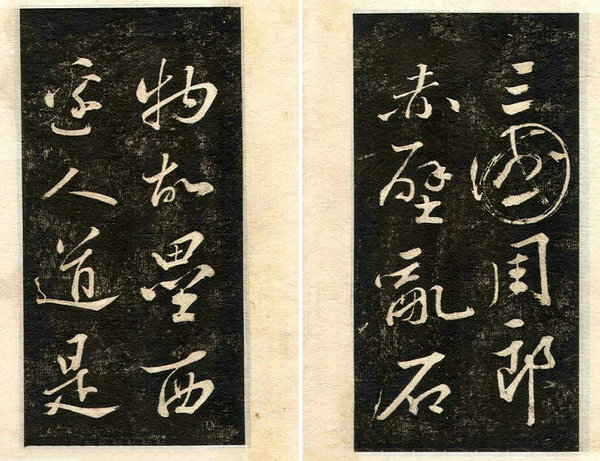 物故壘西
邊人道是
三國周郎
赤壁亂石